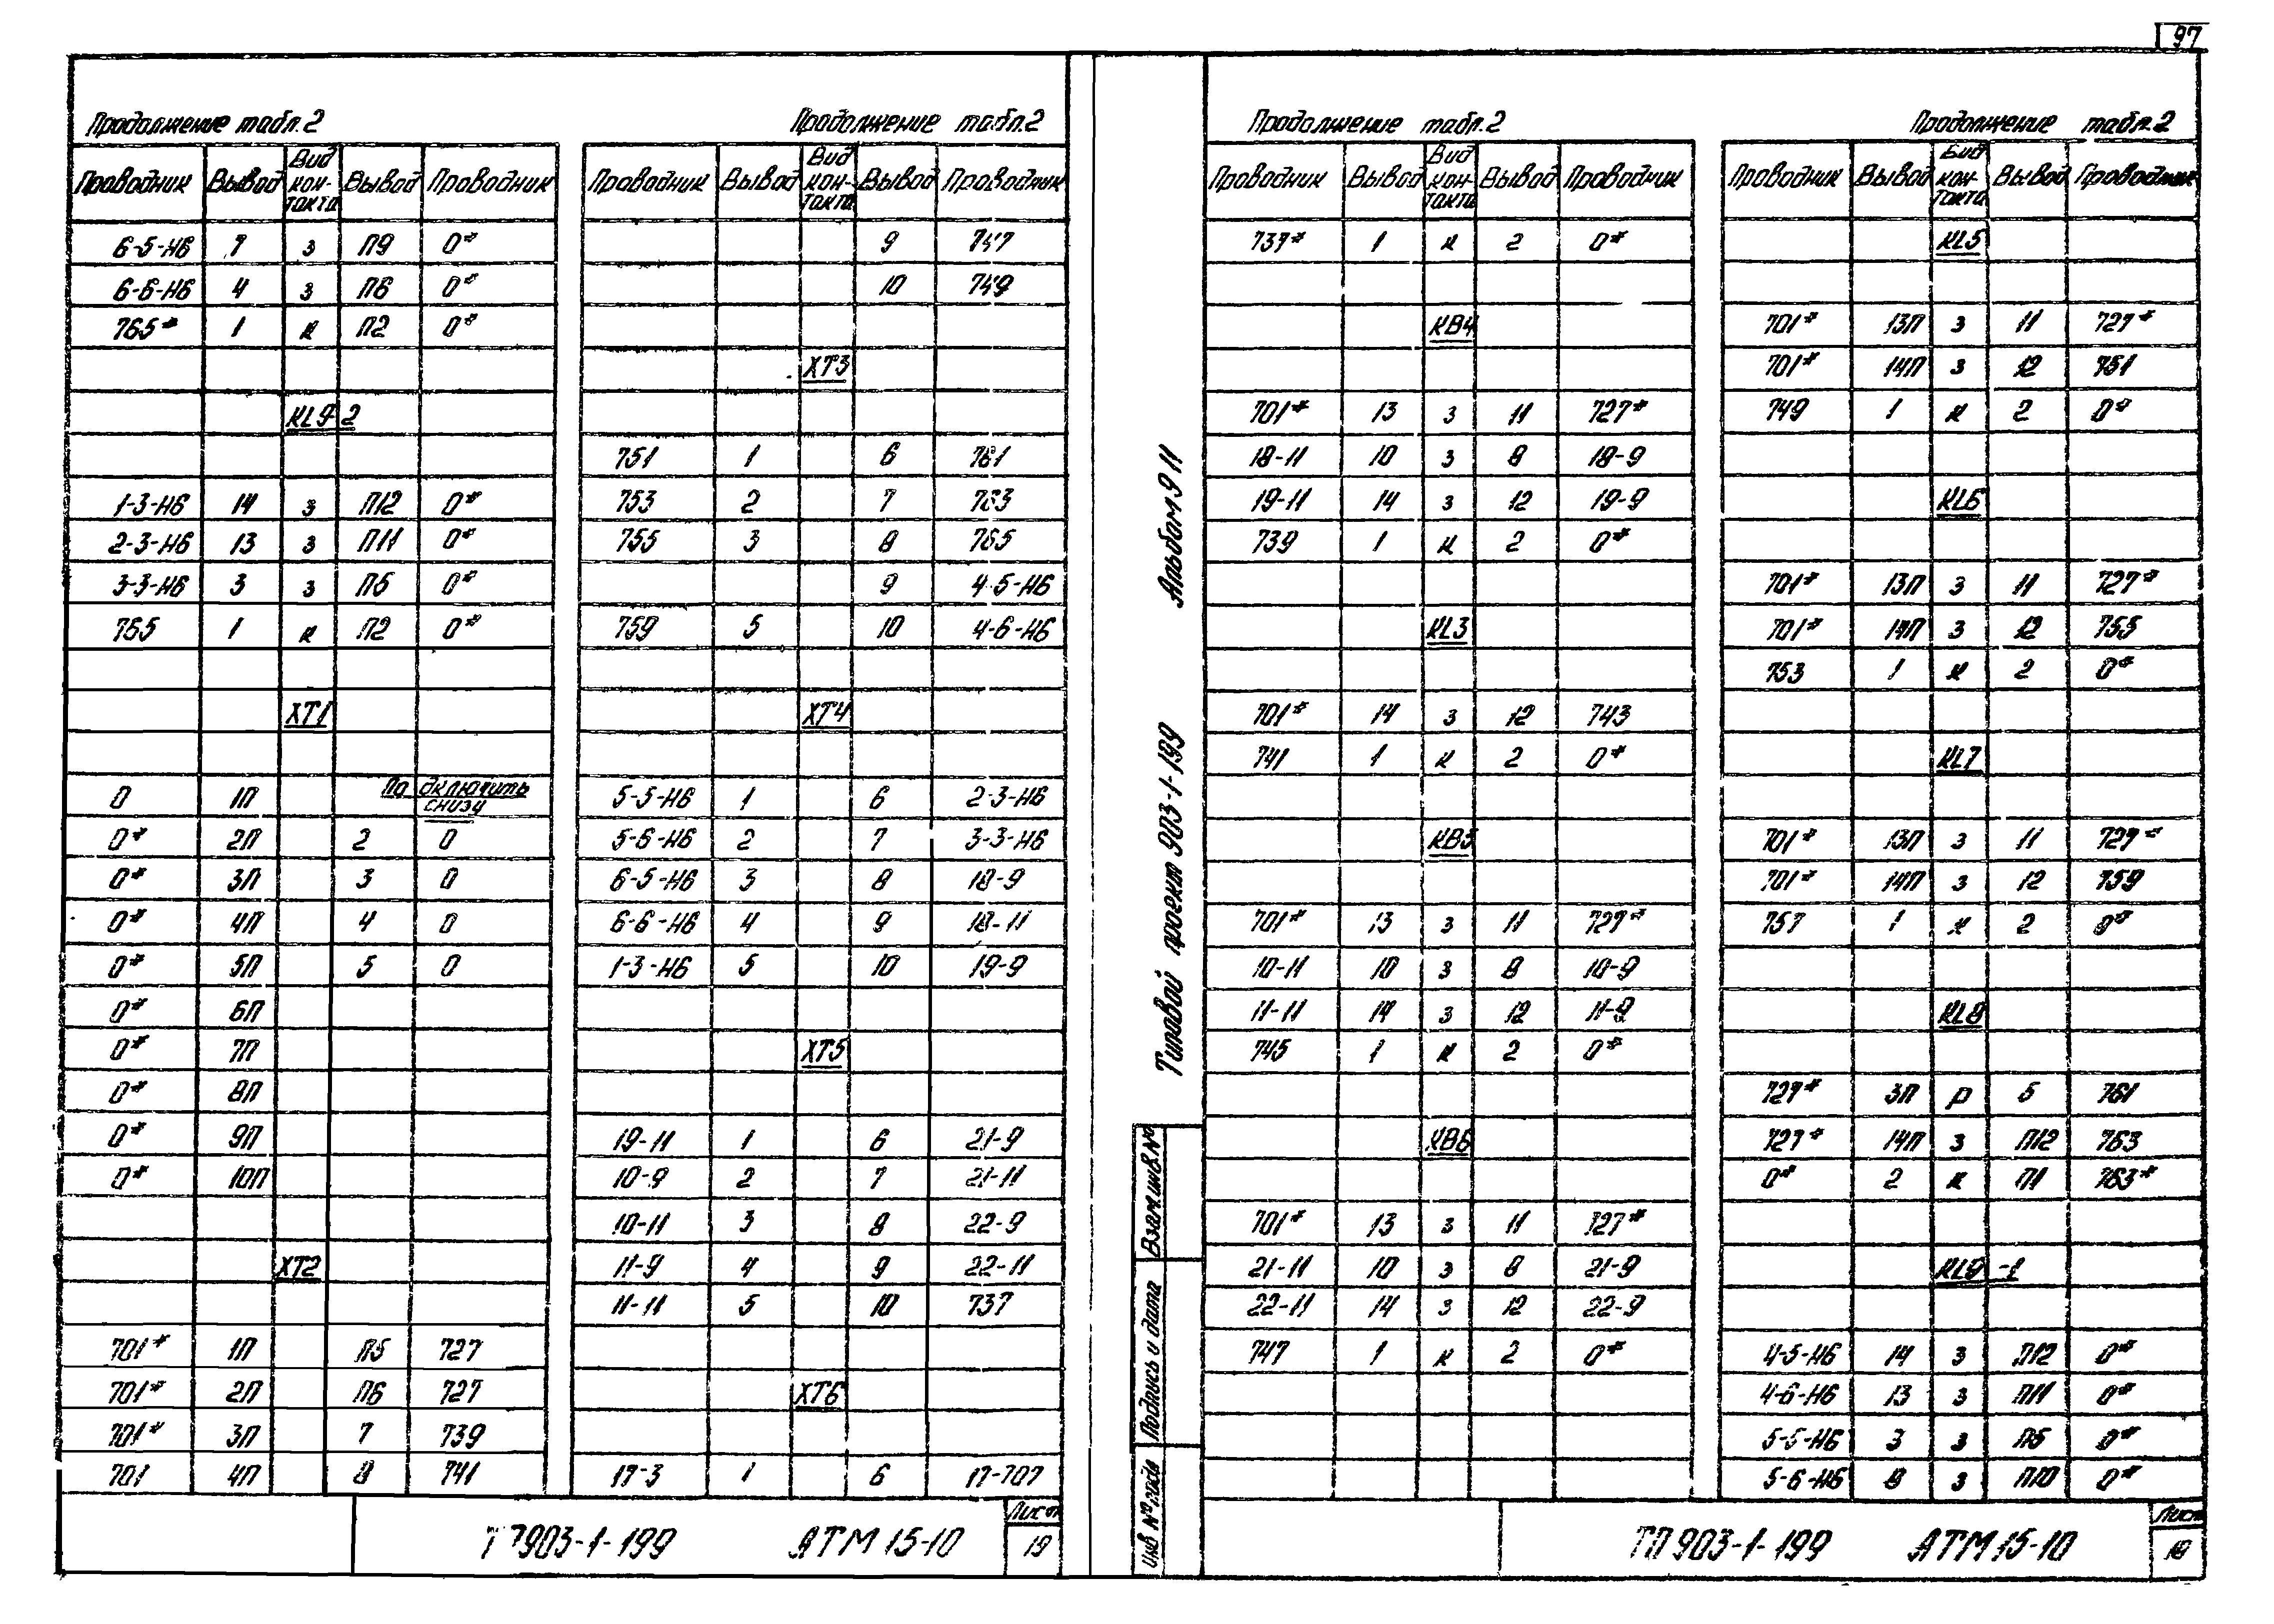 97
Продолжение табл.2
Проводник Вывод Вид контакта Вывод Проводник
6-5-Н6 7 з П9 0*
6-6-Н6 4 з П6 0*
765* 1 к П2 0*
KL9 2
1-3-Н6 14 з П12 0*
2-3-Н6 13 з П11 0*
3-3-Н6 3 з П5 0*
765 1 к П2 0*
XT1
0 1П Подключить снизу
0* 2П 2 0
0* 3П 3 0
0* 4П 4 0
0* 5П 5 0
0* 6П
0* 7П
0* 8П
0* 9П
0* 10П
XT2
701* 1П П5 727
701* 2П П6 727
701* 3П 7 739
701 4П 8 741
Продолжение табл.2
Проводник Вывод Вид контакта Вывод Проводник
9 747
10 749
XT3
751 1 6 761
753 2 7 763
755 3 8 765
9 4-5-Н6
759 5 10 4-6-Н6
XT4
5-5-Н6 1 6 2-3-Н6
5-6-Н6 2 7 3-3-Н6
6-5-Н6 3 8 18-9
6-6-Н6 4 9 18-11
1-3-Н6 5 10 19-9
XT5
19-11 1 6 21-9
10-9 2 7 21-11
10-11 3 8 22-9
11-9 4 9 22-11
11-11 5 10 737
XT6
17-3 1 6 17-707
Т 903-1-199 АТМ 15-10
Лист
19
Альбом 9 11
Типовой проект 903-1-199
Взам инв.№
Подпись и дата
Инв № подл
Продолжение табл.2
Проводник Вывод Вид контакта Вывод Проводник
737* 1 к 2 0*
КВ4
701* 13 з 11 727*
18-11 10 з 8 18-9
19-11 14 з 12 19-9
739 1 к 2 0*
KL3
701* 14 з 12 743
741 1 к 2 0*
КВ5
701* 13 з 11 727*
10-11 10 з 8 10-9
11-11 14 з 12 11-9
745 1 к 2 0*
КВ6
701* 13 з 11 727*
21-11 10 з 8 21-9
22-11 14 з 12 22-9
747 1 к 2 0*
Продолжение табл.2
Проводник Вывод Вид контакта Вывод Проводник
KL5
701* 13П з 11 727*
701* 14П з 12 751
749 1 к 2 0*
KL6
701* 13П з 11 727*
701* 14П з 12 755
753 1 к 2 0*
KL7
701* 13П з 11 727*
701* 14П з 12 759
757 1 к 2 0*
KL8
727* 3П р 5 761
727* 14П з П12 763
0* 2 к П1 763*
KL9 -1
4-5-Н6 14 з П12 0*
4-6-Н6 13 з П11 0*
5-5-Н6 3 з П5 0*
5-6-Н6 8 з П10 0*
ТП 903-1-199 АТМ 15-10
Лист